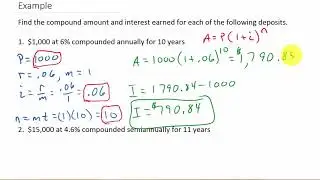 Example
Find the compound amount and interest earned for each of the following deposits.
A = P(1+i)^n
1. $1,000 at 6% compounded annually for 10 years
P = 1000
A = 1000(1+.06)^10 = $1,790.85
r = .06, m = 1
i = r/m = .06/1 = .06
I = 1790.84 - 1000
n = mt = (1)(10) = 10
I = $790.84
2. $15,000 at 4.6% compounded semiannually for 11 years